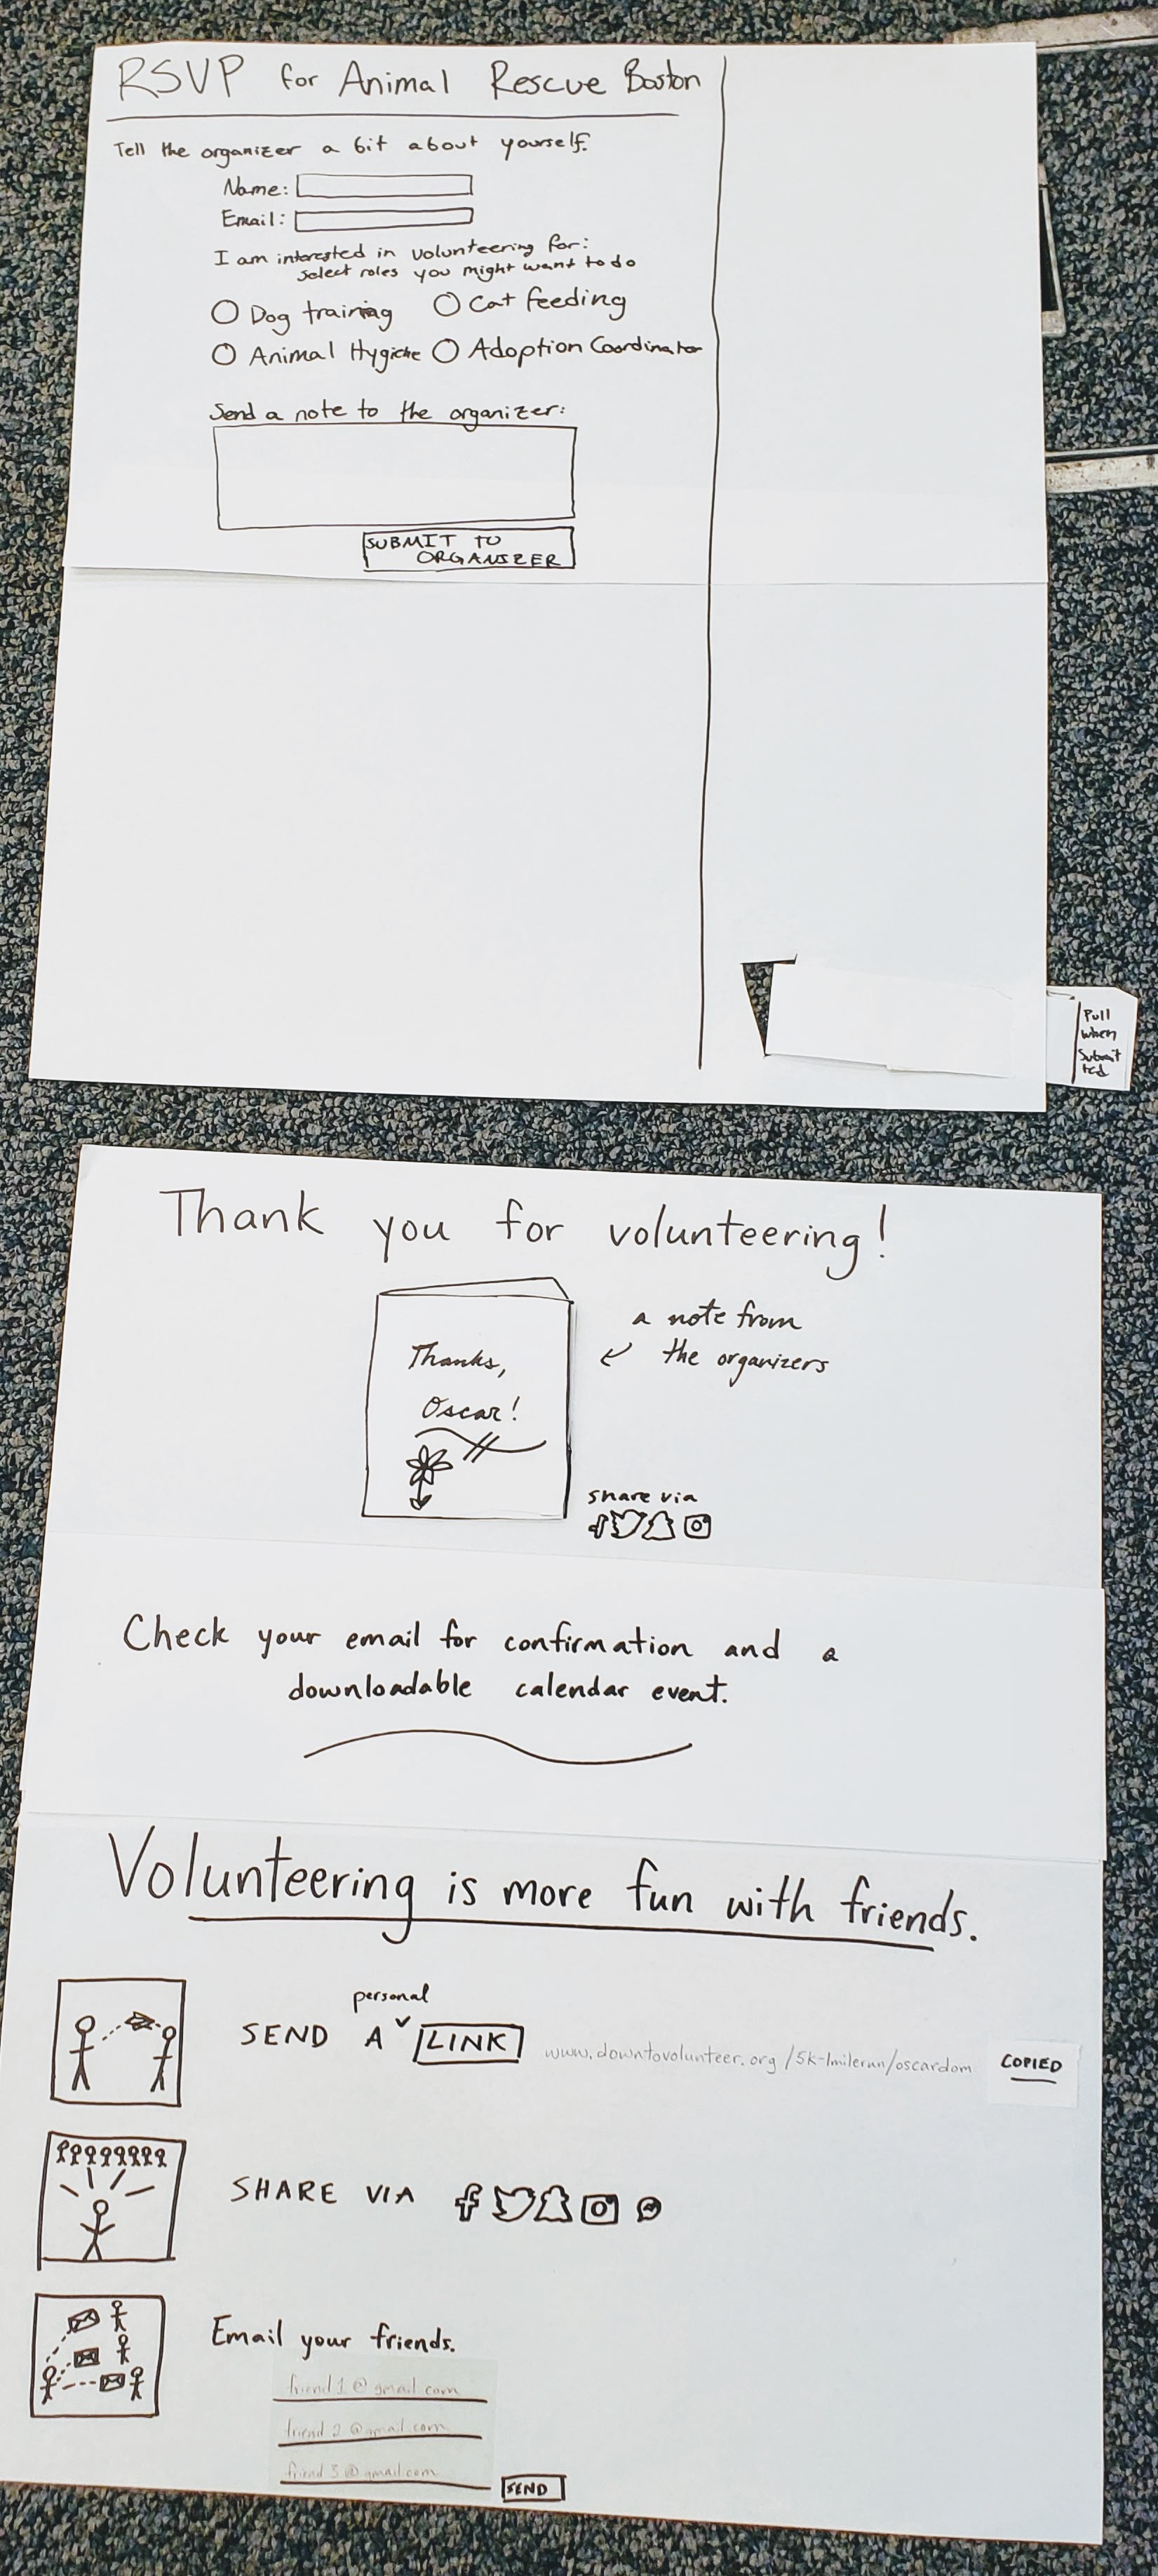 RSVP for Animal Rescue Boston
Tell the organizer a bit about yourself.
Name:
Email:
I am interested in volunteering for:
select roles you might want to do
Dog training
Cat feeding
Animal Hygiene
Adoption Coordinator
Send a note to the organizer:
SUBMIT TO
ORGANIZER
Pull
when
Submit
ted
Thank you for volunteering!
Thanks,
Oscar!
a note from
the organizers
share via
Check your email for confirmation and a
downloadable calendar event.
Volunteering is more fun with friends.
personal
SEND A LINK
www.downtovolunteer.org/5k-1milerun/oscardom
COPIED
SHARE VIA
Email your friends.
friend1@gmail.com
friend2@gmail.com
friend3@gmail.com
SEND